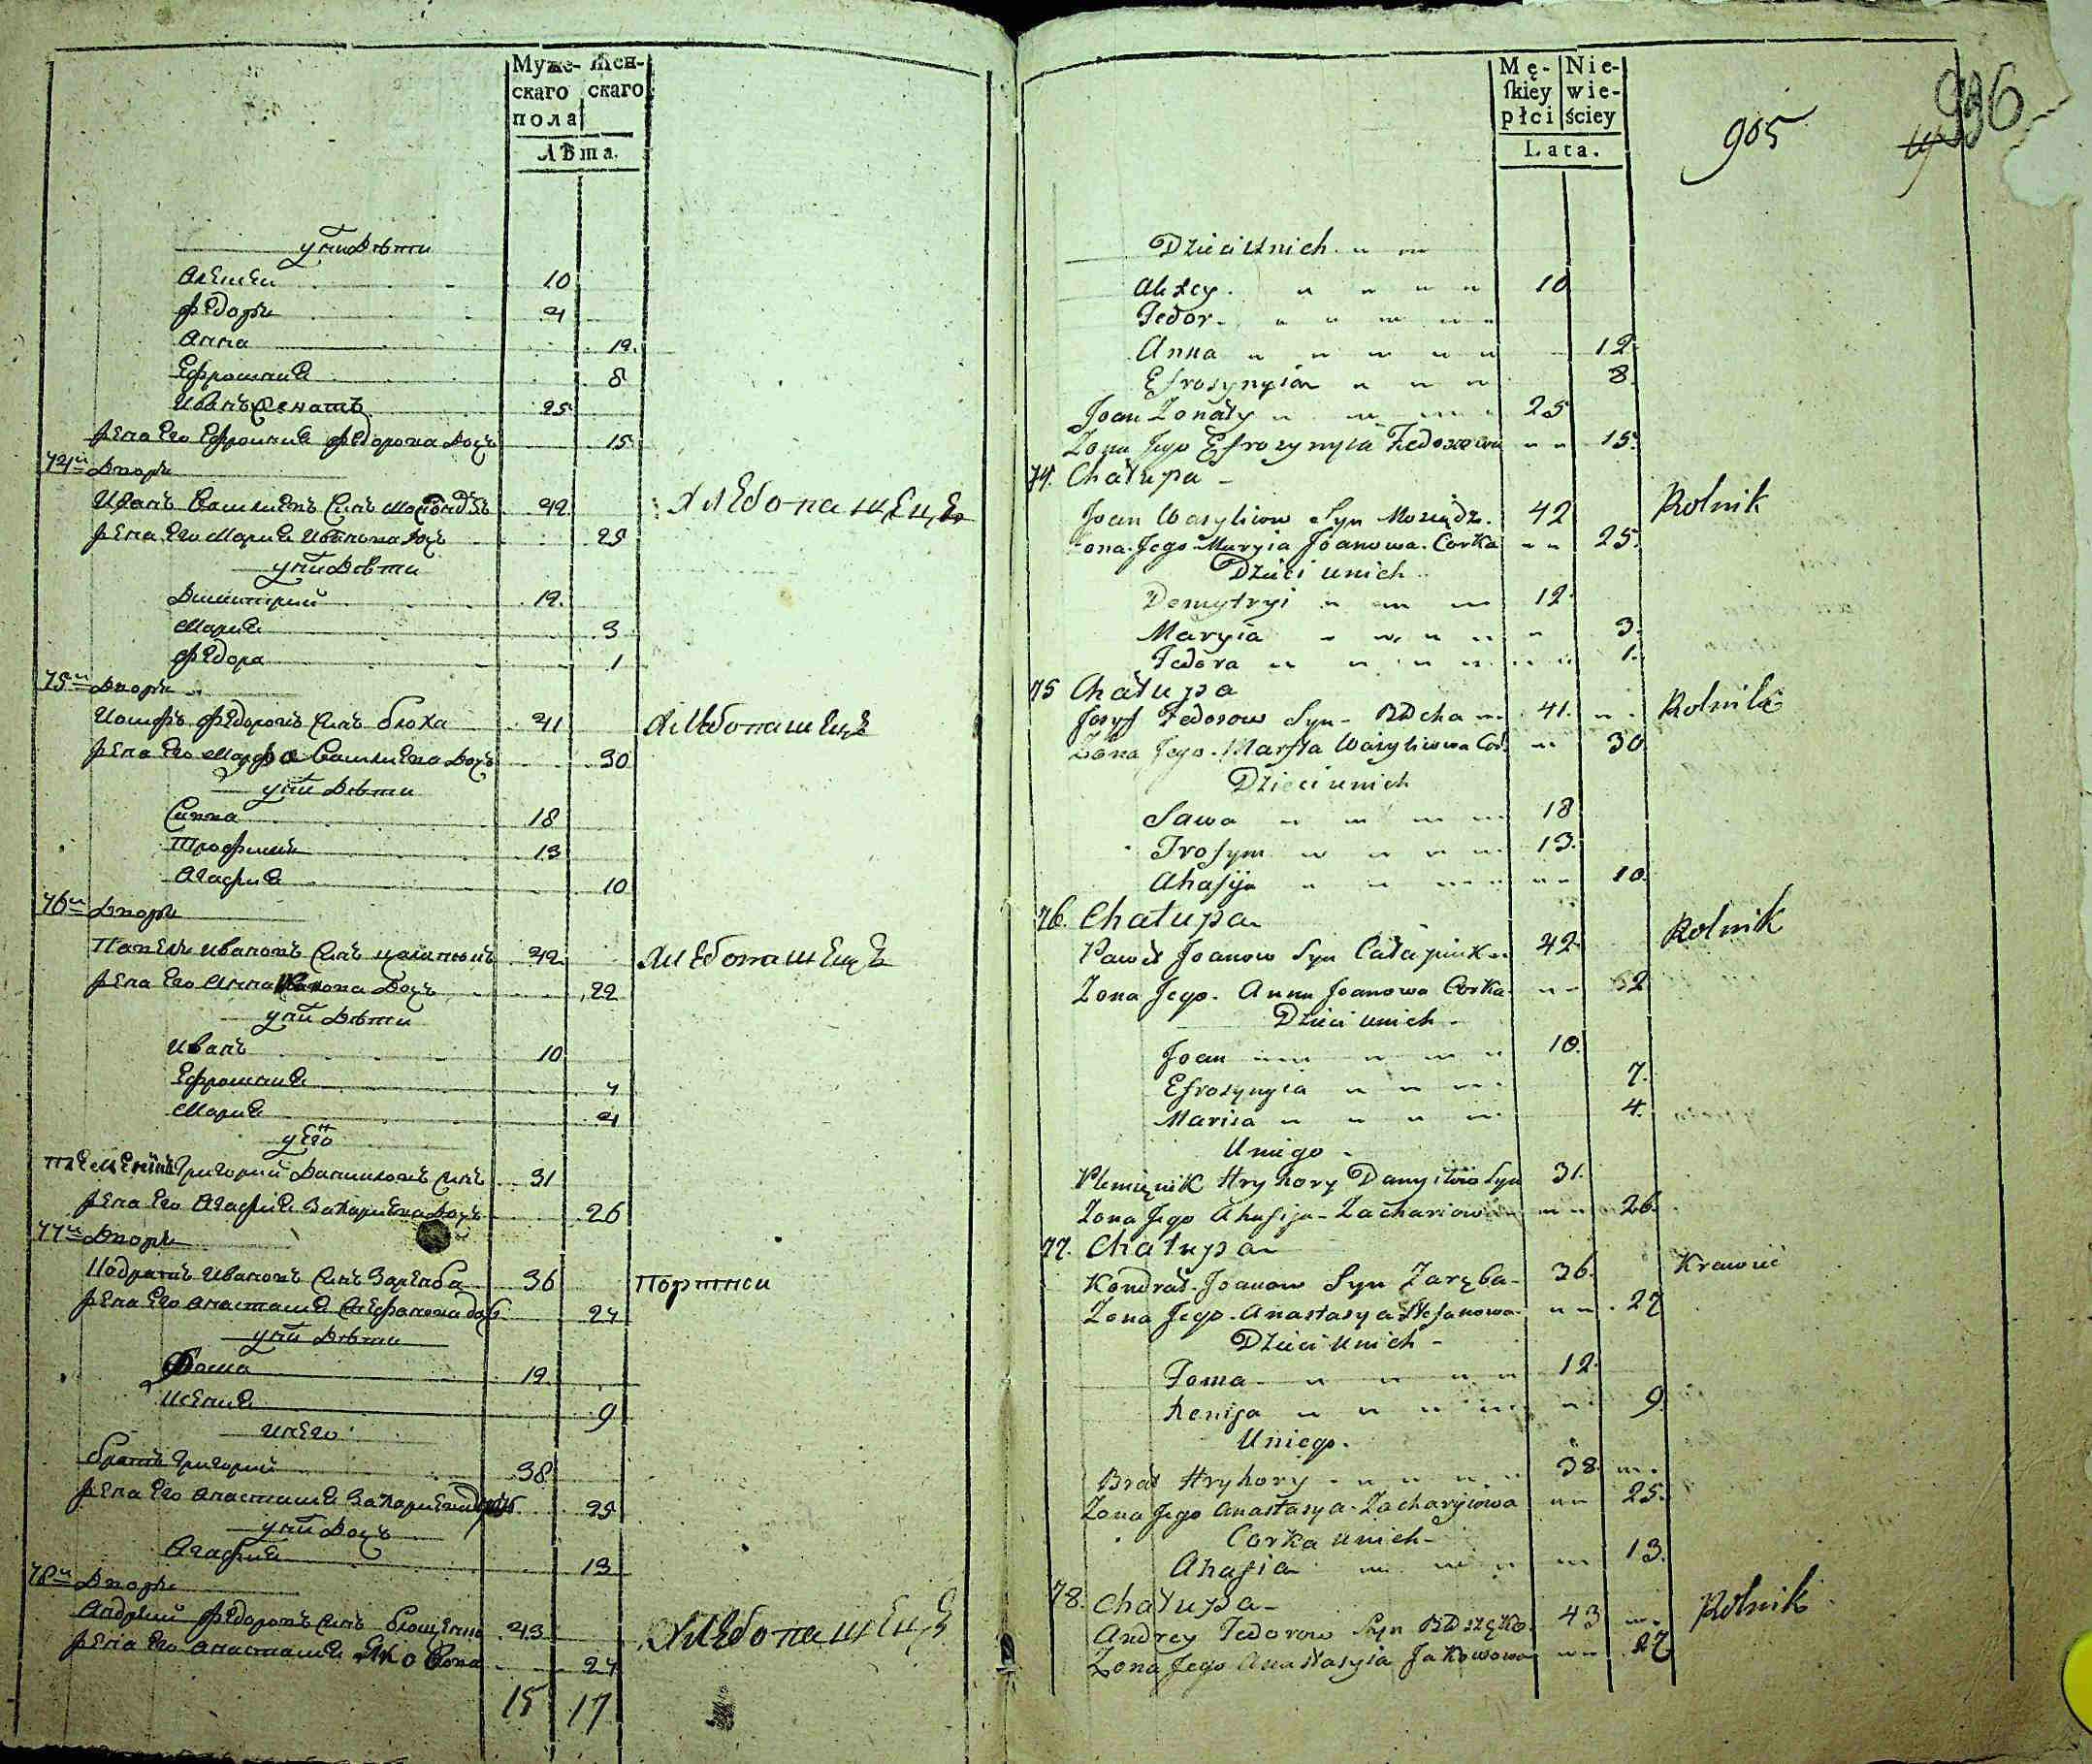 Муже-
скаго
пола
Жен-
скаго
Лѣта.
у них дѣти
Алексей 10
Федоръ 4
Анна 12.
Ефросиния 8
Иванъ Женатъ 25
Жена Его Ефросиния Федорова Дочь 15
74й Дворъ
Иванъ Василиевъ Синъ 42 Хлебопашецъ
Жена Его Мария Иванова Дочь 25
у них Дѣти
Димитрий 12.
Мария 3
Федора 1
75й Дворъ
Иосифъ Федоровъ Синъ блоха 41 Хлебопашецъ
Жена Его Марфа Василиева Дочь 30
у них Дѣти
Савва 18
Трофимъ 13
Агафия 10
76й Дворъ
Павелъ Ивановъ Синъ 42 Хлебопашецъ
Жена Его Анна Иванова Дочь 22
у них Дѣти
Иванъ 10
Ефросиния 7
Мария 4
у Него
племеникъ Григорий Даниловъ Синъ 31
Жена Его Агафия Захариева Дочь 26
77й Дворъ
Кодратъ Ивановъ Синъ Заремба 36 Портной
Жена Его Анастасия Стефанова дочь 27
у них Дѣти
Фома 12.
Ксения 9
у Него
братъ Григорий 38
Жена Его Анастасия Захариева дочь 25
у них Дочь
Агафия 13
78й Дворъ
Андрей Федоровъ Синъ 43 Хлебопашецъ
Жена Его Анастасия Яковова 27
15 17
Mę-
ſkiey
płci
Nie-
wie-
ściey
Lata.
905
936
Dzieci Unich
Alexey 10
Fedor
Anna 12
Efrosynyia 8
Joan Zonaty 25
Zona Jego Efrozynyia Fedorowa 15
74. Chałupa
Joan Wasyliow Syn 42 Rolnik
Zona Jego Maryia Joanowa Corka 25.
Dzieci unich
Demytryi 12
Maryia 3
Fedora 1.
75 Chałupa
Josyf Fedorow Syn Błocha 41. Rolnik
Zona Jego Marfta Wasyliowna Cor. 30
Dzieci unich
Sawa 18
Trofym 13.
Ahafija 10.
76. Chałupa
Paweł Joanow Syn 42 Rolnik
Zona Jego Anna Joanowa Corka 32
Dzieci unich
Joan 10.
Efrosynyia 7.
Marisa 4.
Uniego
Plemięnik Hryhory Danyiłów Syn 31.
Zona Jego Ahafija Zachariowa 26.
77. Chałupa
Kondrat Joanow Syn Zaręba 36. Krawiec
Zona Jego Anastasya Stefanowa 27
Dzieci Unich
Foma 12
Xenija 9
Uniego.
Brat Hryhory 38
Zona Jego Anastasya Zacharyiowa 25.
Corka unich
Ahafia 13.
78. Chałupa
Andrey Fedorow Syn 43 Rolnik
Zona Jego Anastasyia Jakowowa 27